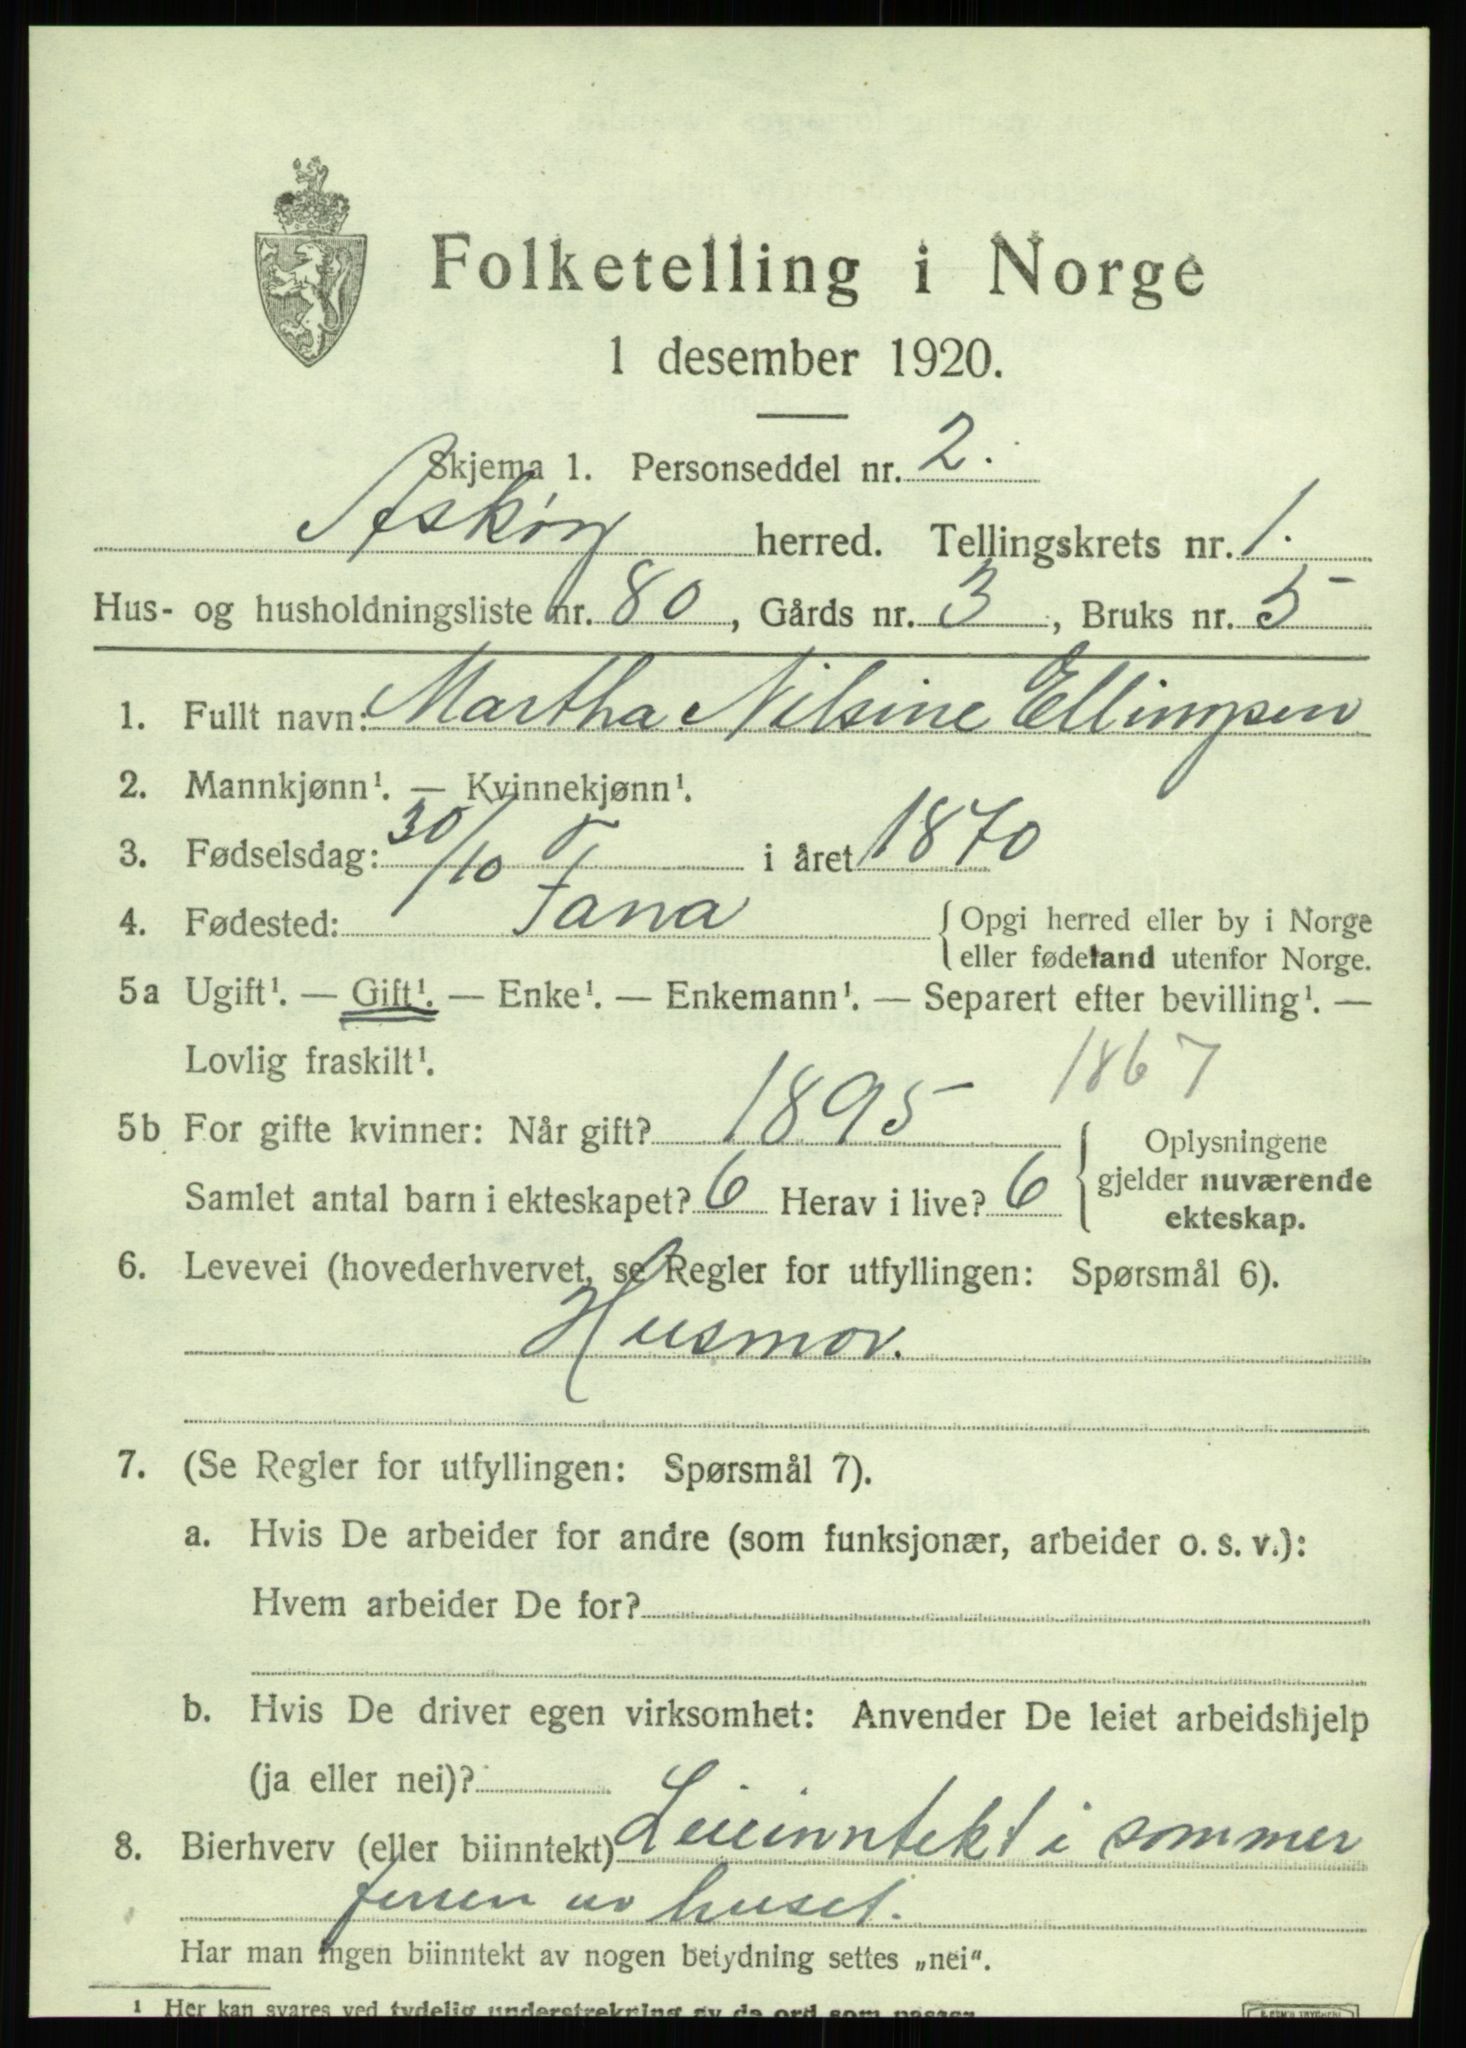 Folketelling i Norge
1 desember 1920.
Skjema 1. Personseddel nr. 2.
Askøy herred. Tellingskrets nr. 1.
Hus- og husholdningsliste nr. 80, Gårds nr. 3, Bruks nr. 5
1. Fullt navn: Martha Nilsine Ellingsen
2. Mannkjønn¹. — Kvinnekjønn¹.
3. Fødselsdag: 30/10 i året 1870
4. Fødested: Fana { Opgi herred eller by i Norge
eller fødeland utenfor Norge.
5a Ugift¹. — Gift¹. — Enke¹. — Enkemann¹. — Separert efter bevilling¹. —
Lovlig fraskilt¹. 1867
5b For gifte kvinner: Når gift? 1895 { Oplysningene
gjelder nuværende
ekteskap.
Samlet antal barn i ekteskapet? 6 Herav i live? 6
6. Levevei (hovederhvervet, se Regler for utfyllingen: Spørsmål 6).
Husmor.
7. (Se Regler for utfyllingen: Spørsmål 7).
a. Hvis De arbeider for andre (som funksjonær, arbeider o. s. v.):
Hvem arbeider De for?
b. Hvis De driver egen virksomhet: Anvender De leiet arbeidshjelp
(ja eller nei)?
8. Bierhverv (eller biinntekt) Leieinntekt i sommer
ferien av huset.
Har man ingen biinntekt av nogen betydning settes „nei“.
¹ Her kan svares ved tydelig understrekning av de ord som passer.